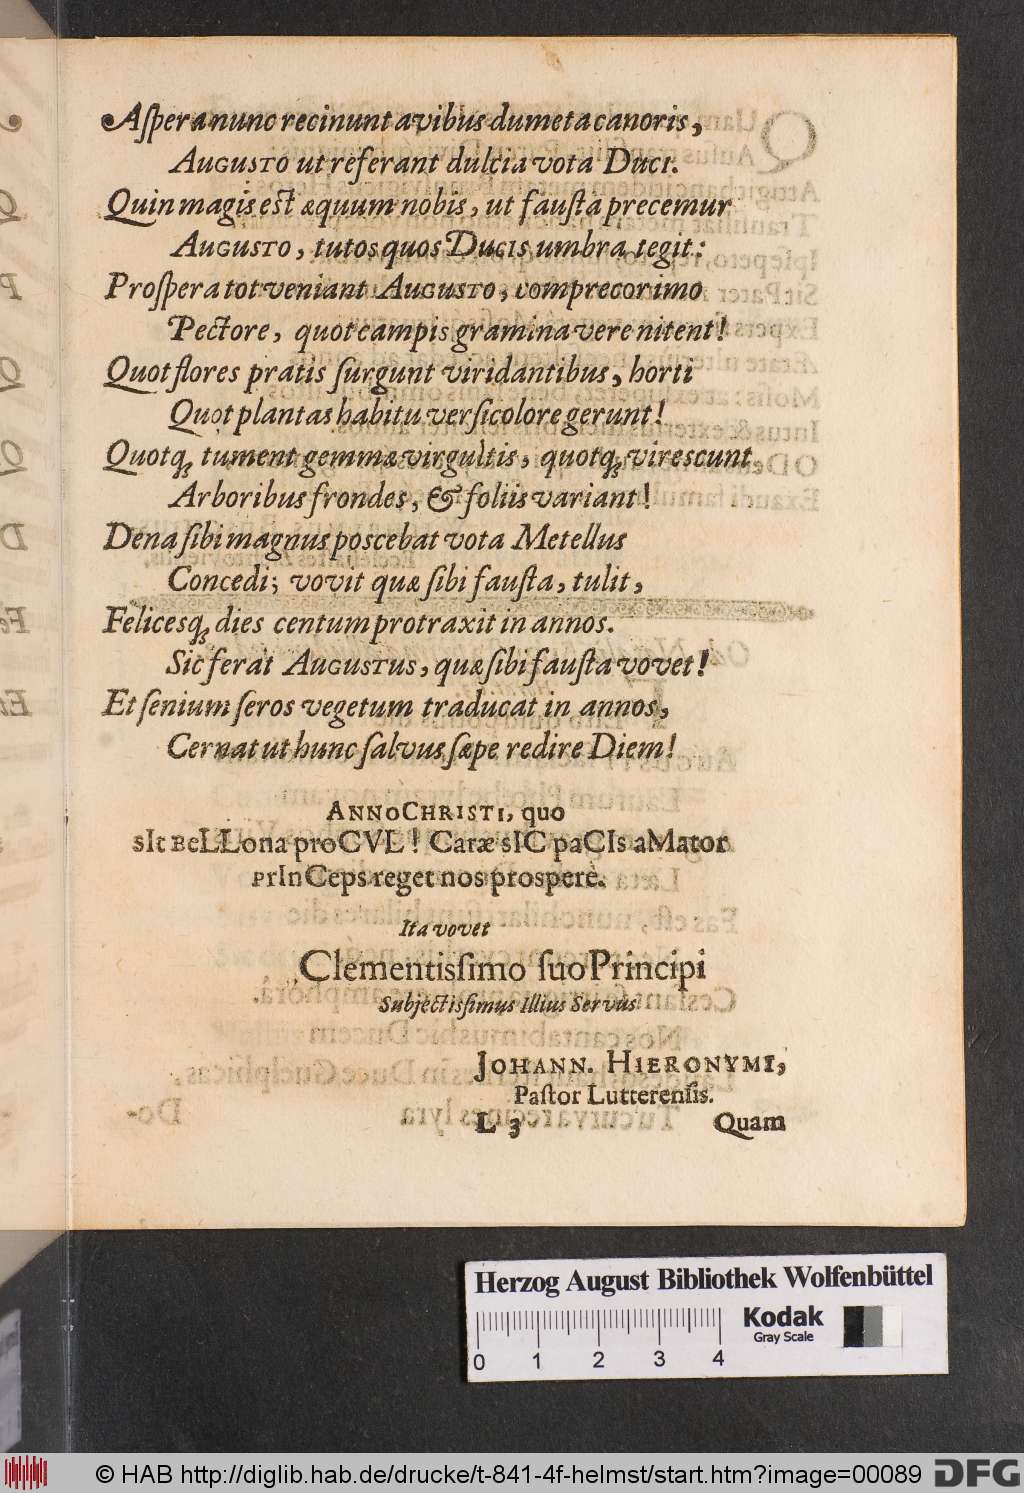 Aſpera nunc recinunt avibus dumeta canoris,
Augusto ut referant dulcia vota Duci.
Quin magis est æquum nobis, ut fauſta precemur
Augusto, tutos quos Ducis umbra tegit:
Proſpera tot veniant Augusto, comprecor imo
Pectore, quot campis gramina vere nitent!
Quot flores pratis ſurgunt viridantibus, horti
Quot plantas habitu verſicolore gerunt!
Quotq; tument gemmæ virgultis, quotq; vireſcunt
Arboribus frondes, & foliis variant!
Dena ſibi magnus poscebat vota Metellus
Concedi; vovit quæ ſibi fauſta, tulit,
Felicesq; dies centum protraxit in annos.
Sic ferat Augustus, quæ ſibi fauſta vovet!
Et ſenium ſeros vegetum traducat in annos,
Cernat ut hunc ſalvus ſæpe redire Diem!
Anno Christi, quo
sIt BeLLona proCVL! Caræ sIC paCIs aMator
PrInCeps reget nos prosperè.
Ita vovet
Clementisſimo ſuo Principi
Subjectisſimus Illius Servus
Johann. Hieronymi,
Paſtor Lutterenſis.
L 3 Quam
Herzog August Bibliothek Wolfenbüttel
Kodak
Gray Scale
0 1 2 3 4
© HAB http://diglib.hab.de/drucke/t-841-4f-helmst/start.htm?image=00089 DFG